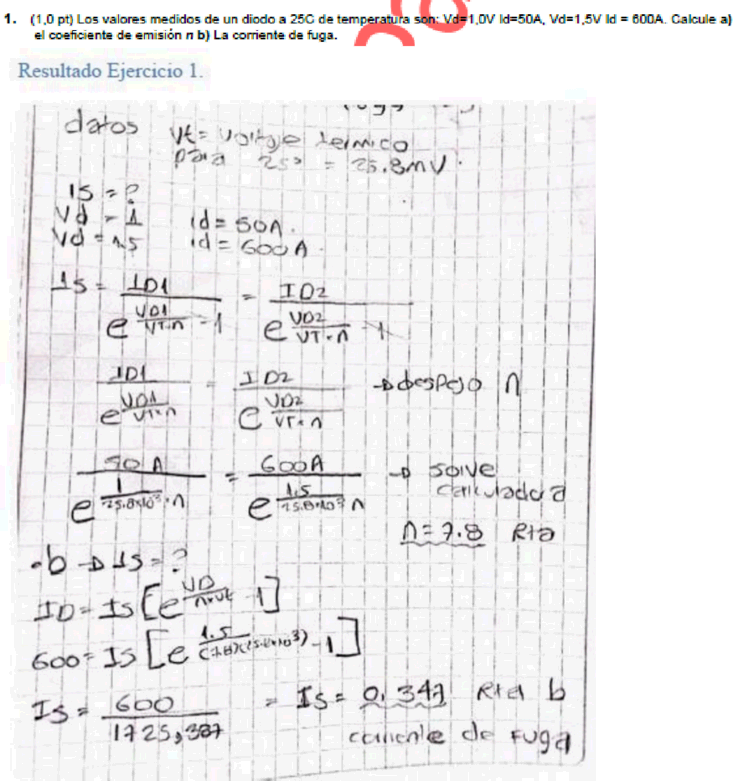 1. (1,0 pt) Los valores medidos de un diodo a 25C de temperatura son: Vd=1,0V Id=50A, Vd=1,5V Id = 600A. Calcule a)
el coeficiente de emisión n b) La corriente de fuga.
Resultado Ejercicio 1.
datos
Vt= Voltaje termico
para 25° = 25.8mV.
IS = ?
Vd = 1 id = 50A.
Vd = 1.5 id = 600A.
IS = ID1 / e^(VD1/VT.n) - 1 = ID2 / e^(VD2/VT.n) - 1
ID1 / e^(VD1/VT×n) = ID2 / e^(VD2/VT×n) → despejo n
50A / e^(1/25.8x10³.n) = 600A / e^(1.5/25.8x10³ n) → solve
calculadora
n=7.8 Rta
.b → IS = ?
ID = IS [e^(VD/n×Vt) - 1]
600 = IS [e^(1.5/(7.8)(25.8x10³)) - 1]
IS = 600 / 1725,387 = IS = 0,347 Rta b
corriente de fuga